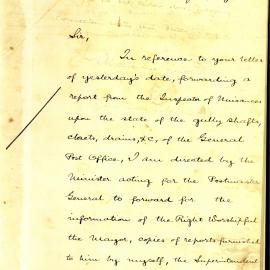 Sir,
In reference to your letter
of yesterday's date, forwarding a
report from the Inspector of Nuisances
upon the state of the gully shafts,
closets, drains, &c, of the General
Post Office, I am directed by the
Minister acting for the Postmaster
General to forward for the
information of the Right Worshipful
the Mayor, copies of reports furnished
to him by myself, the Superintendent